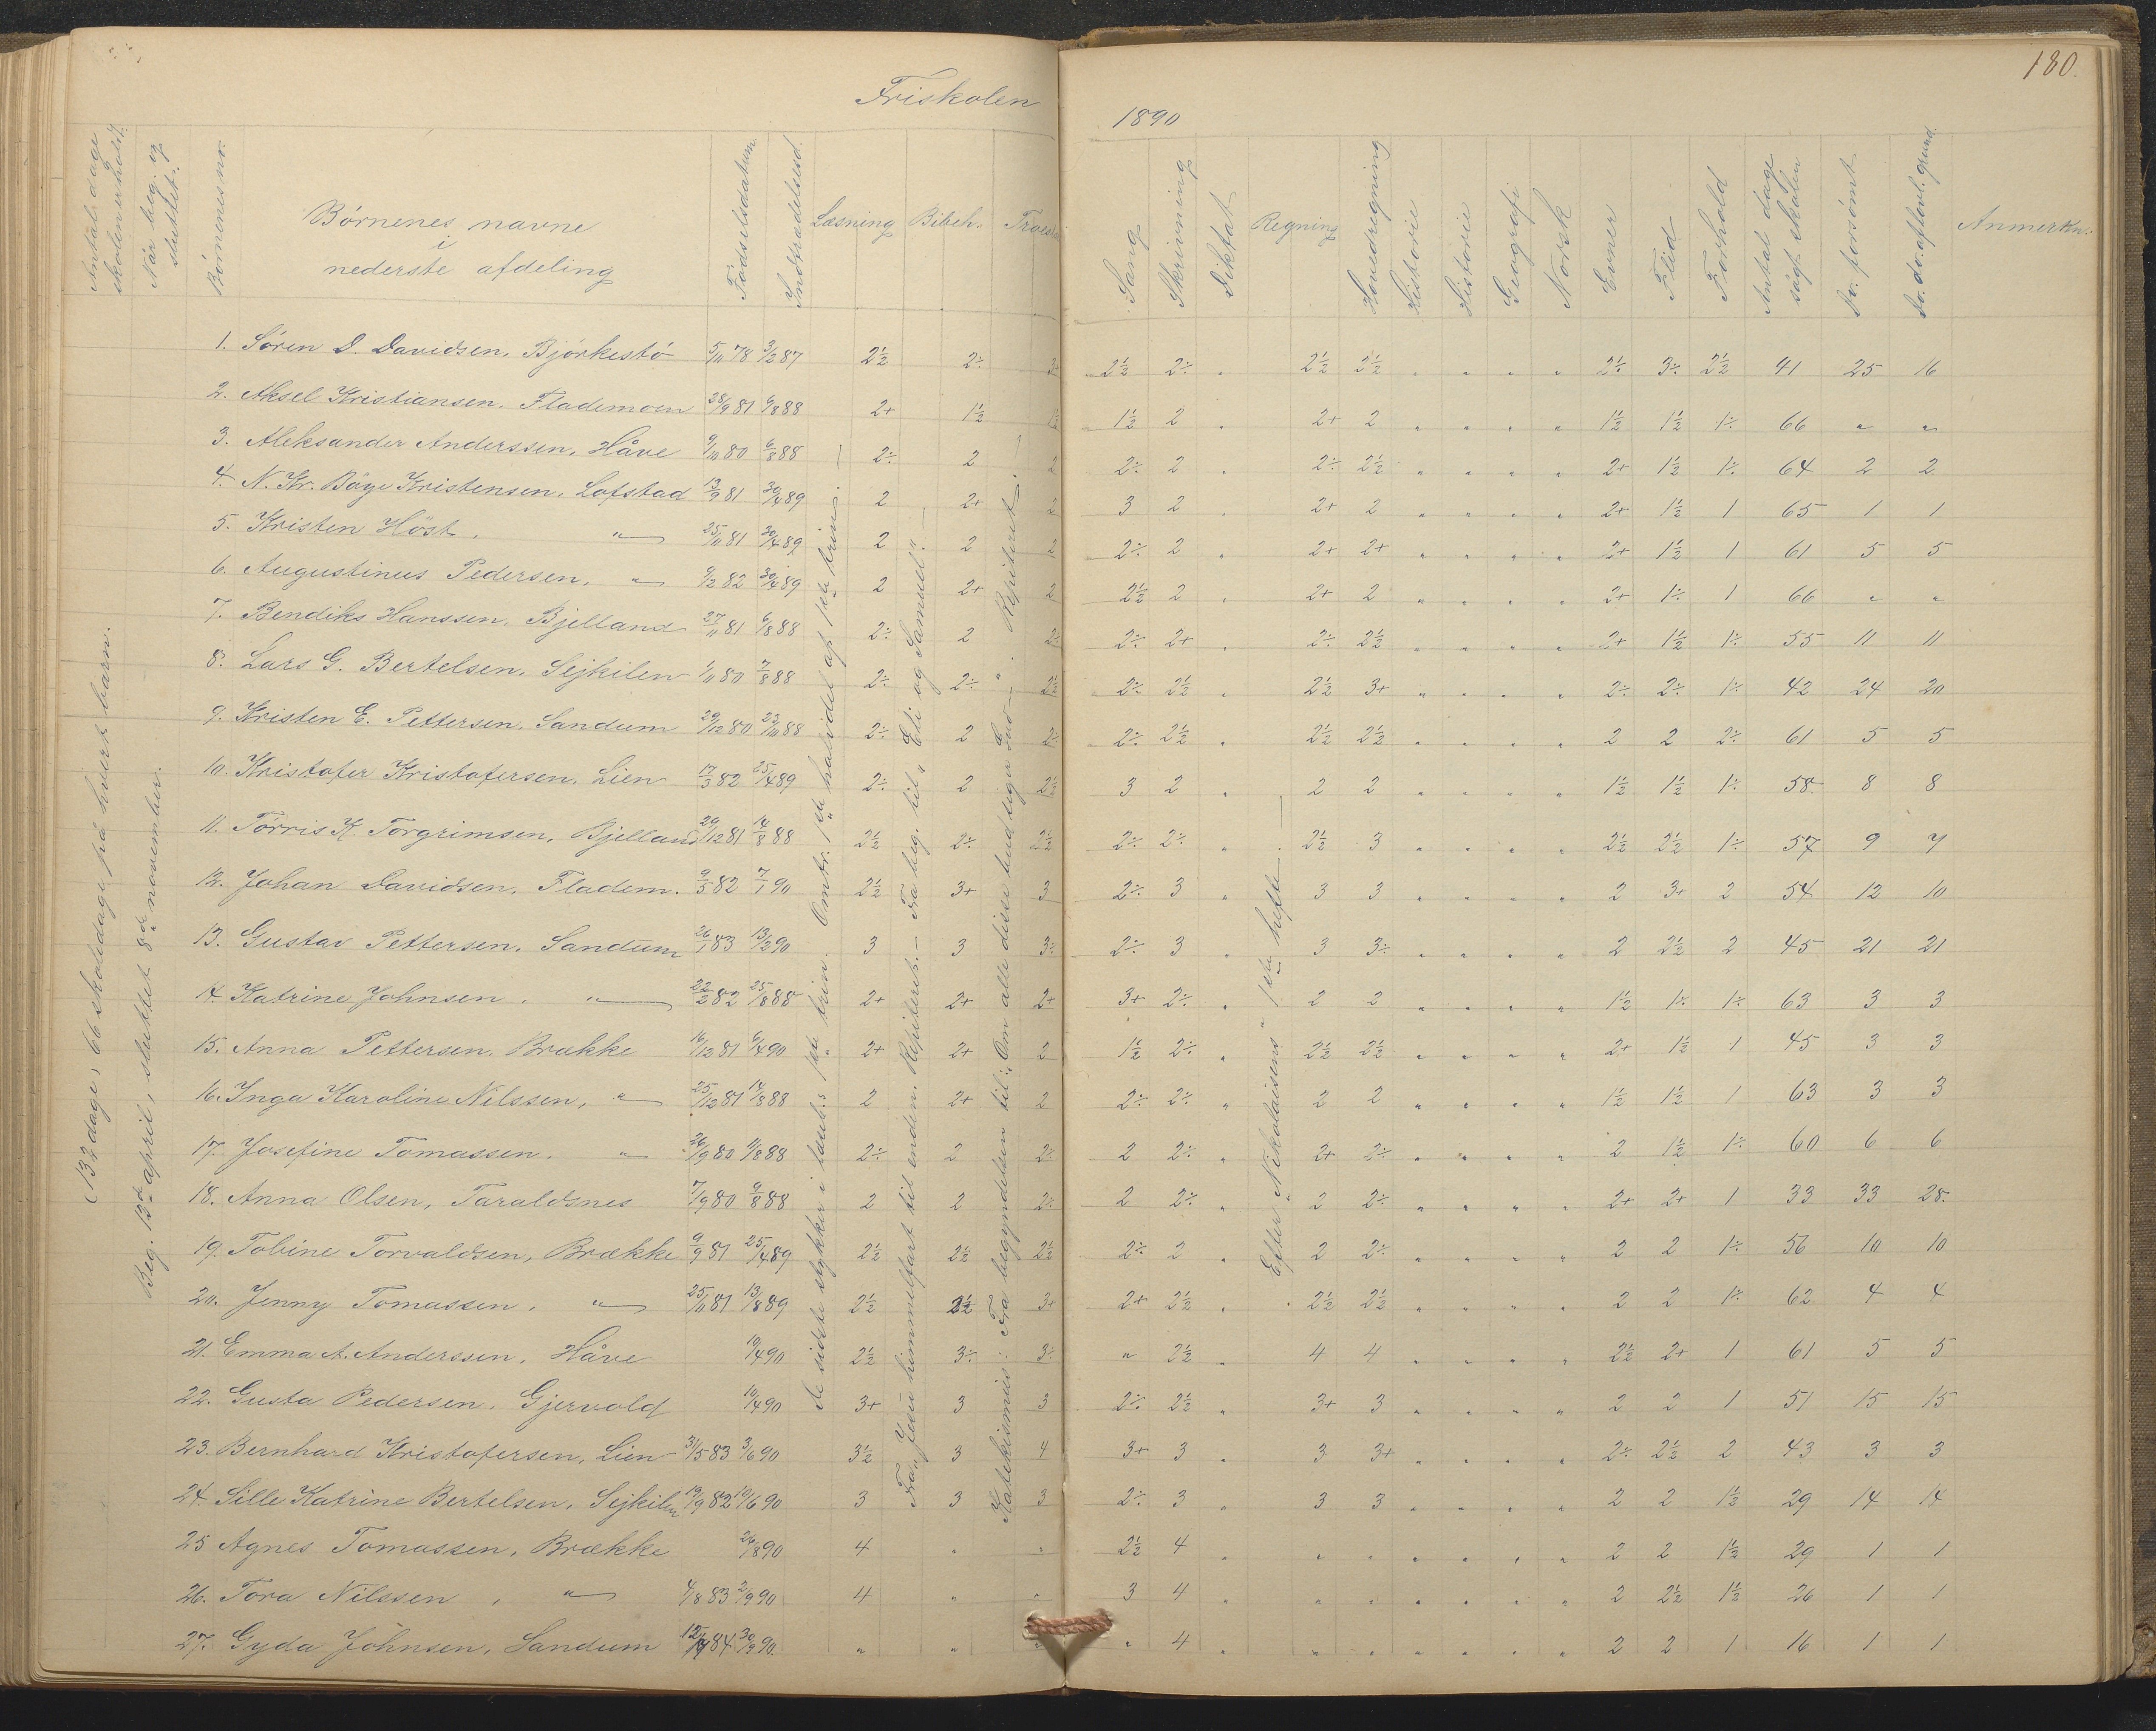 180.
Friskolen
1890
Antal dage skolen er holdt.
Når beg. og sluttet.
Börnenes nr.
Börnenes navne
i
nederste afdeling
Födselsdatum
Indtrædelsesd.
Læsning
Bibelh.
Troesl.
Sang
Skrivning
Diktat
Regning
Hovedregning
Historie
Historie
Geografi
Norsk
Evner
Flid
Forhold
Antal dage søgt skolen
Do. forsömt
Do. do. af lovl. grund.
Anmerkn.
(132 dage, 66 skoledage på hvert barn.
Beg. 13de april, sluttet 8de november.
De sidste stykker i læseb.s 1ste trin. Omtr. 1ste halvdel af 1ste trin.
Fra „Jesu himmelfart til enden. Repiteret. — Fra beg. til „Eli og Samuel".
Katekismus: Fra begyndelsen til: „Om alle disse bud siger Gud —". Repiteret.
Efter „Nikolaisens" 1ste hefte
1. Sören D. Davidsen, Bjørkestö 5/11 78 3/2 87 2½ 2÷ 3+ 2½ 2÷ „ 2½ 2½ „ „ „ „ 2÷ 3÷ 2½ 41 25 16
2. Aksel Kristiansen, Flademoen 28/9 81 6/8 88 2+ 1½ 1½ 1½ 2 „ 2+ 2 „ „ „ „ 1½ 1½ 1÷ 66 „ „
3. Aleksander Anderssen, Håve 9/10 80 6/8 88 2÷ 2 2 2÷ 2 „ 2÷ 2½ „ „ „ „ 2+ 1½ 1÷ 64 2 2
4. N. Kr. Böye Kristensen, Lofstad 13/9 81 30/4 89 2 2+ 2 3 2 „ 2+ 2 „ „ „ „ 2+ 1½ 1 65 1 1
5. Kristen Höst, „ 25/11 81 30/4 89 2 2 2 2÷ 2 „ 2+ 2+ „ „ „ „ 2+ 1½ 1 61 5 5
6. Augustinus Pedersen, „ 9/2 82 30/4 89 2 2+ 2 2½ 2 „ 2+ 2 „ „ „ „ 2+ 1÷ 1 66 „ „
7. Bendiks Hanssen, Bjelland 27/11 81 6/8 88 2÷ 2 2÷ 2÷ 2+ „ 2÷ 2½ „ „ „ „ 2+ 1½ 1÷ 55 11 11
8. Lars G. Bertelsen, Sejkilen 1/11 80 7/8 88 2÷ 2÷ 2½ 2÷ 2½ „ 2½ 3+ „ „ „ „ 2÷ 2÷ 1÷ 42 24 20
9. Kristen E. Pettersen, Sandum 29/12 80 23/10 88 2÷ 2 2÷ 2÷ 2½ „ 2½ 2½ „ „ „ „ 2 2 2÷ 61 5 5
10. Kristofer Kristofersen, Lien 17/3 82 25/4 89 2÷ 2 2½ 3 2 „ 2 2 „ „ „ „ 1½ 1½ 1÷ 58 8 8
11. Törris K. Torgrimsen, Bjelland 29/12 81 14/8 88 2½ 2÷ 2½ 2÷ 2÷ „ 2½ 3 „ „ „ „ 2½ 2½ 1÷ 57 9 7
12. Johan Davidsen, Fladem. 9/5 82 7/1 90 2½ 3+ 3 2÷ 3 „ 3 3 „ „ „ „ 2 3+ 2 54 12 10
13. Gustav Pettersen, Sandum 26/1 83 13/2 90 3 3 3÷ 2÷ 3 „ 3 3÷ „ „ „ „ 2 2½ 2 45 21 21
14. Katrine Johnsen, „ 22/2 82 25/8 88 2+ 2+ 2+ 3+ 2÷ „ 2 2 „ „ „ „ 1½ 1÷ 1÷ 63 3 3
15. Anna Pettersen, Brække 16/12 81 9/4 90 2+ 2+ 2 1½ 2÷ „ 2½ 2½ „ „ „ „ 2+ 1½ 1 45 3 3
16. Inga Karoline Nilssen, „ 25/12 81 14/8 88 2 2+ 2 2÷ 2÷ „ 2 2 „ „ „ „ 1½ 1½ 1 63 3 3
17. Josefine Tomassen, „ 26/9 80 9/8 88 2÷ 2 2÷ 2 2÷ „ 2+ 2÷ „ „ „ „ 2 1½ 1÷ 60 6 6
18. Anna Olsen, Taraldsnes 7/9 80 9/8 88 2 2 2÷ 2 2÷ „ 2 2÷ „ „ „ „ 2+ 2+ 1 33 33 28.
19. Tobine Torvaldsen, Brække 9/9 81 25/4 89 2½ 2½ 2½ 2÷ 2 „ 2 2÷ „ „ „ „ 2 2 1÷ 56 10 10
20. Jenny Tomassen, „ 25/11 81 13/8 89 2½ 2½ 3+ 2+ 2½ „ 2½ 2½ „ „ „ „ 2 2 1÷ 62 4 4
21. Emma A. Anderssen, Håve 10/4 90 2½ 3÷ 3÷ „ 2½ „ 4 4 „ „ „ „ 2½ 2+ 1 61 5 5
22. Gusta Pedersen, Gjervold 10/4 90 3+ 3 3 2÷ 2½ „ 3+ 3 „ „ „ „ 2 2 1 51 15 15
23. Bernhard Kristofersen, Lien 31/5 83 3/6 90 3½ 3 4 3+ 3 „ 3 3+ „ „ „ „ 2÷ 2½ 2 43 3 3
24. Sille Katrine Bertelsen, Sejkilen 19/9 82 19/6 90 3 3 3 2÷ 3 „ 3 3 „ „ „ „ 2 2 1½ 29 14 14
25 Agnes Tomassen, Brække 26/8 90 4 „ „ 2½ 4 „ „ „ „ „ „ „ 2 2 1½ 29 1 1
26. Tora Nilssen, „ 4/8 83 2/9 90 4 „ „ 3 4 „ „ „ „ „ „ „ 2 2½ 1½ 26 1 1
27. Gyda Johnsen, Sandum 12/4 84 30/9 90. „ „ „ „ 4 „ „ „ „ „ „ „ 2 2 1 16 1 1